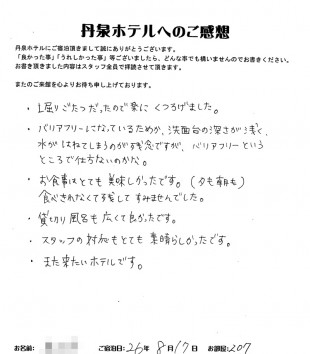 丹泉ホテルへのご感想
丹泉ホテルにご宿泊頂きまして誠にありがとうございます。
「良かった事」「うれしかった事」等ございましたら、どんな事でも構いませんのでお書きください。
お書き頂きました内容はスタッフ全員で拝読させて頂きます。
またのご来館を心よりお待ち申し上げております。
・掘りごたつだったので楽にくつろげました。
・バリアフリーになっているためか、洗面台の深さが浅く、
水がはねてしまうのが残念ですが、バリアフリーという
ところで仕方ないのかな。
・お食事はとても美味しかったです。(夕も朝も)
食べきれなくて残してすみませんでした。
・貸切り風呂も広くて良かったです。
・スタッフの対応もとても素晴らしかったです。
・また来たいホテルです。
お名前: ご宿泊日: 26年 8月17日 お部屋: 207